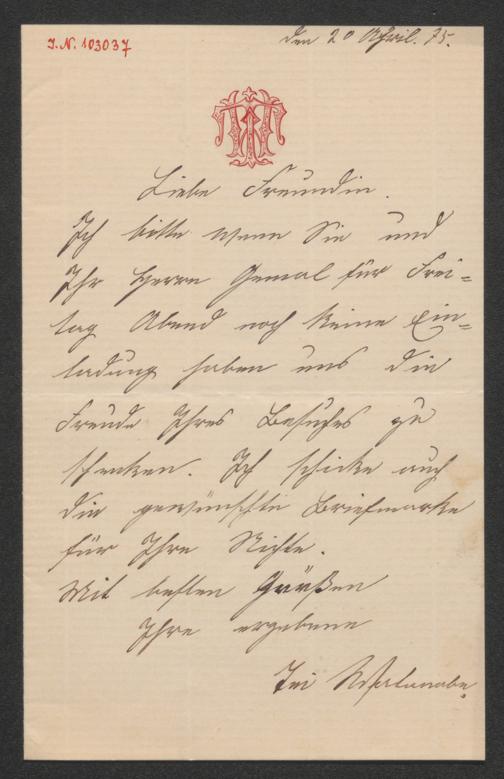 I.N. 103037
den 20 April. 75.
Liebe Freundin.
Ich bitte wenn Sie und
Ihr Herrn Gemal für Frei=
tag Abend noch keine Ein=
ladung haben uns die
Freude Ihres Besuches zu
schenken. Ich schicke auch
die gewünschte Briefmarke
für Ihre Nichte.
Mit besten Grüßen
Ihre ergebene
Watanabe